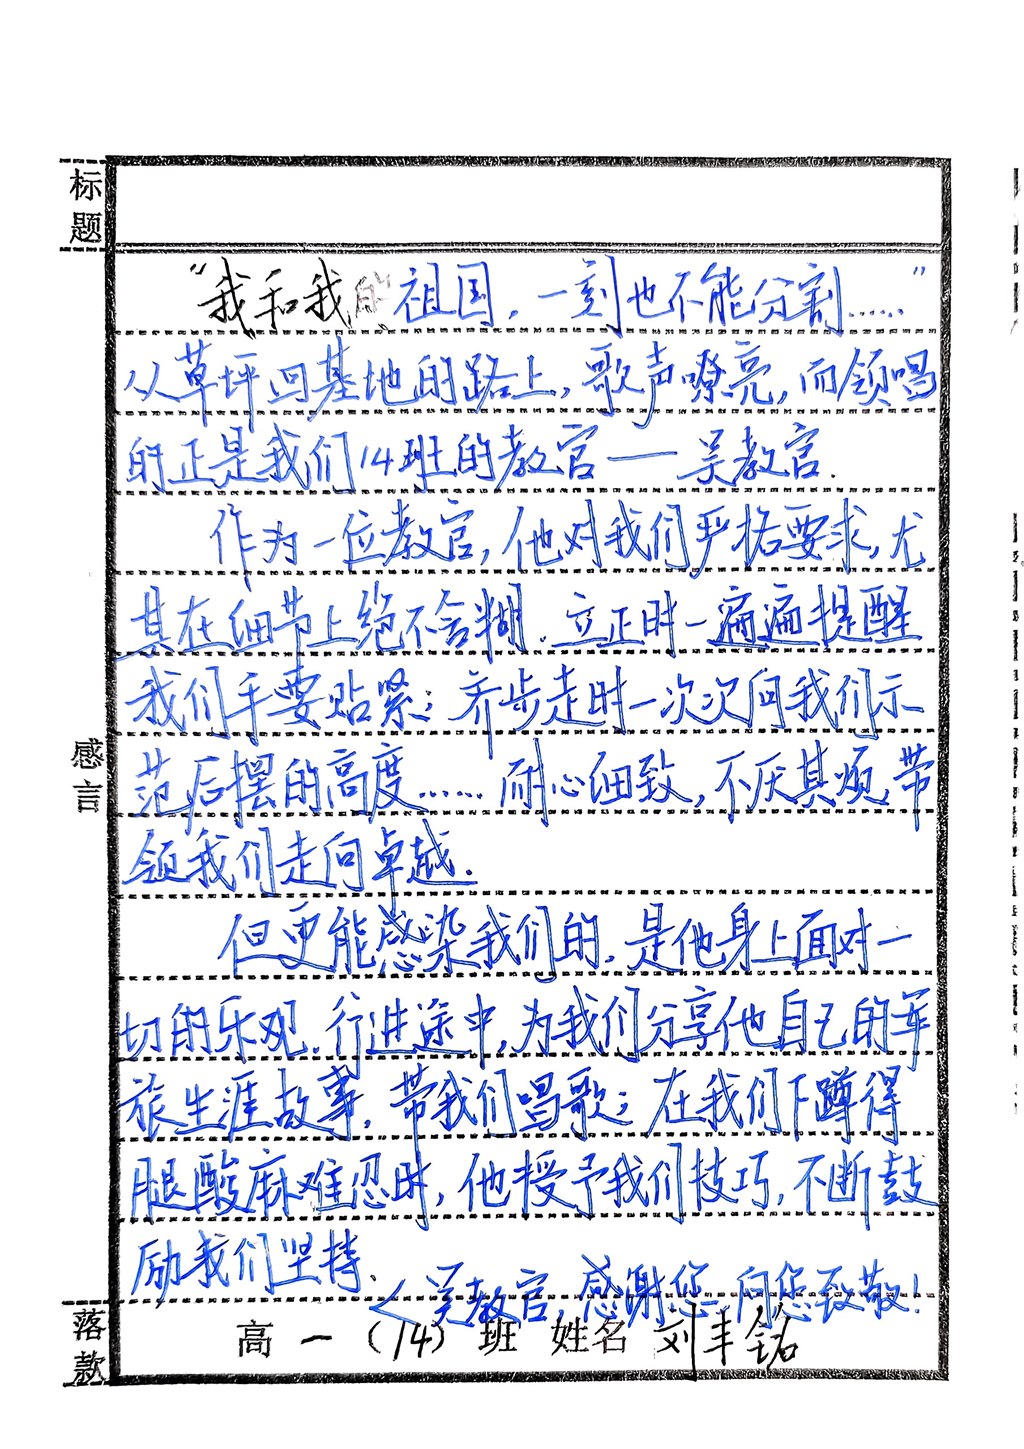 标题
“我和我的祖国，一刻也不能分割……”
从草坪回基地的路上，歌声嘹亮，而领唱
的正是我们14班的教官——吴教官.
作为一位教官，他对我们严格要求，尤
其在细节上绝不含糊.立正时一遍遍提醒
我们手要贴紧；齐步走时一次次向我们示
范后摆的高度……耐心细致，不厌其烦，带
领我们走向卓越.
感言
但更能感染我们的，是他身上面对一
切的乐观.行进途中，为我们分享他自己的军
旅生涯故事，带我们唱歌；在我们下蹲得
腿酸麻难忍时，他授予我们技巧，不断鼓
励我们坚持.
<吴教官，感谢您，向您致敬！
落款
高一（14）班 姓名 刘丰铭